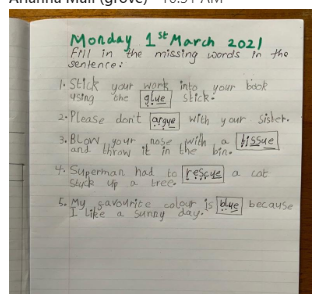 Arianna Mair (grove) 10:51 AM
Monday 1st March 2021
Fill in the missing words in the
sentence:
1. Stick your work into your book
using the glue stick.
2. Please don't argue with your sister.
3. Blow your nose with a tissue
and throw it in the bin.
4. Superman had to rescue a cat
stuck up a tree.
5. My favourite colour is blue because
I like a sunny day.